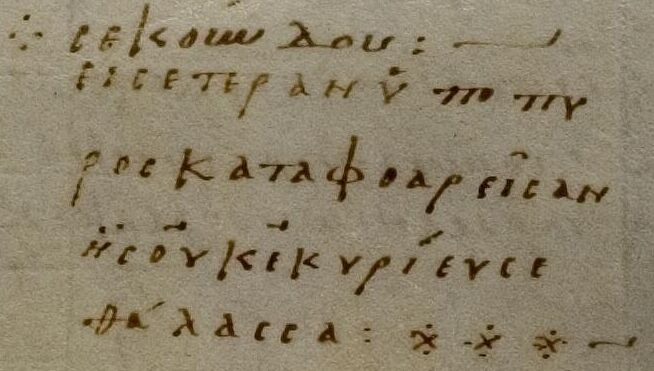 ※ ϲεκούνδου : —
εἰϲ ετεραν ὑπο πυ
ροϲ καταφθαρεῖϲαν
ἧϲ οὐκ ἐκυρίευϲε
θάλαϲϲα : ※ ※ ※ —